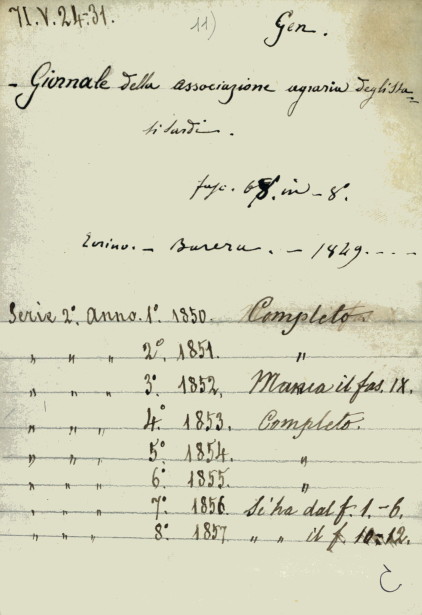 71.V.24-31.
11)
Gen.
- Giornale della associazione agraria degli Sta-
ti Sardi.
fasc. in - 8°.
Torino. - - 1849. - - -
Serie 2ª. Anno. 1° 1850. Completo.
" " " 2° 1851. "
" " " 3° 1852. Manca il fas. IX.
" " " 4° 1853. Completo.
" " " 5° 1854. "
" " " 6° 1855. "
" " " 7° 1856 Si ha dal f. 1.-6.
" " " 8° 1857. " " il f. 10-12.